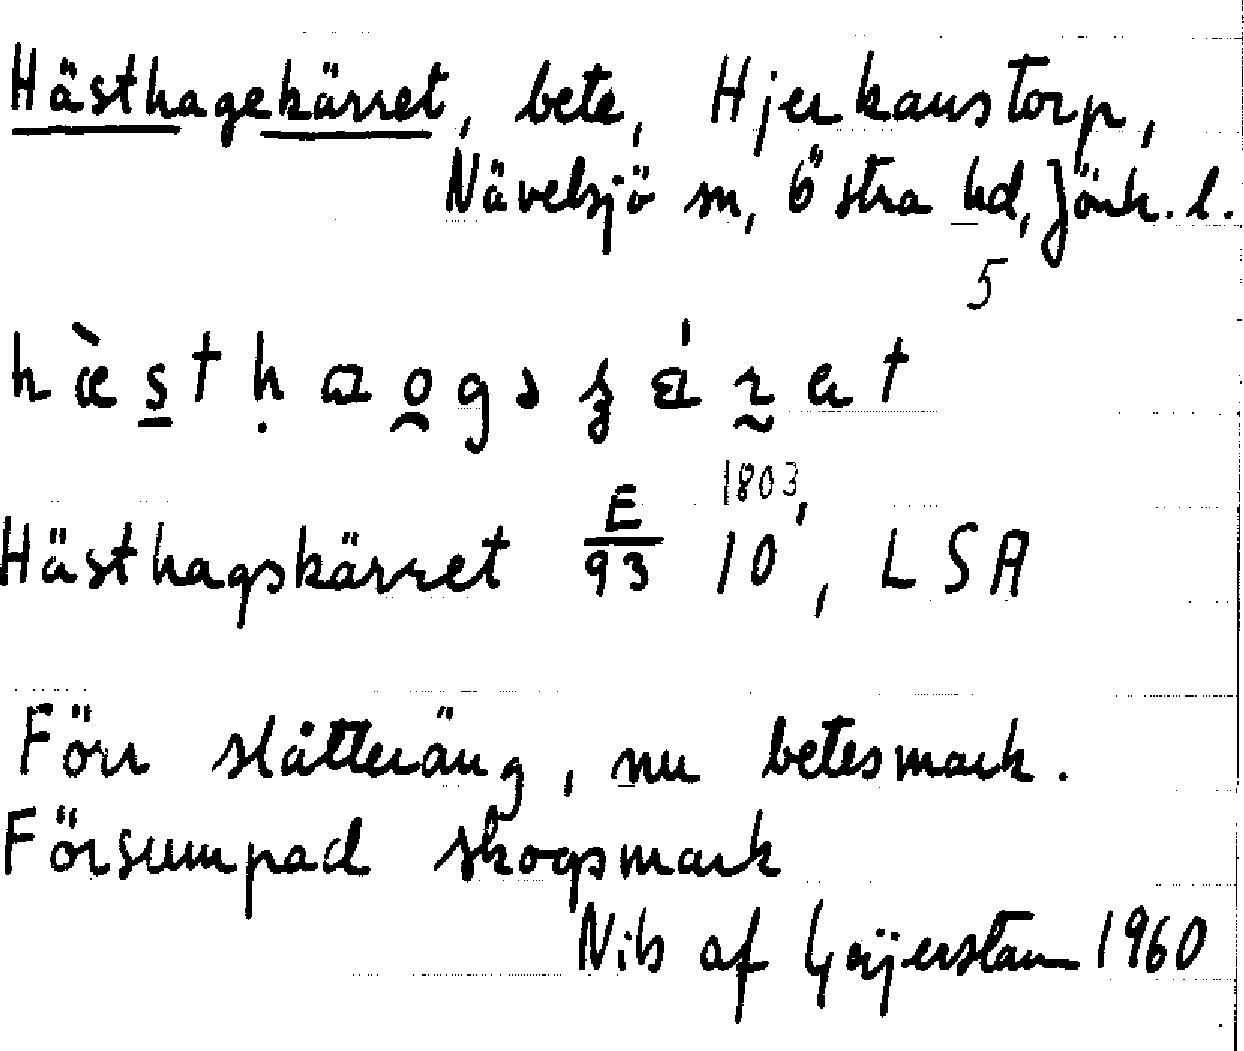 Hästhagekärret, bete, Hjerkanstorp,
Nävelsjö sn, Östra hd, Jönk. l.
5
Hästhagskärret E/93 10, 1803, LSA
Förr slåtteräng, nu betesmark.
Försumpad skogsmark
Nils af Geijerstam 1960